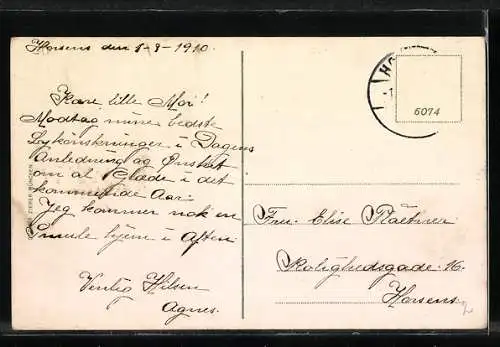 Horsens den 1-8-1910.
Kære lille Mor!
Modtag mine bedste
Lykønskninger i Dagens
Anledning og Ønsket
om al Glæde i det
kommende Aar.
Jeg kommer nok en
Smule hjem i Aften.
Venlig Hilsen
Agnes.
HO
6074
Fru Elise
Rolighedsgade 16.
Horsens